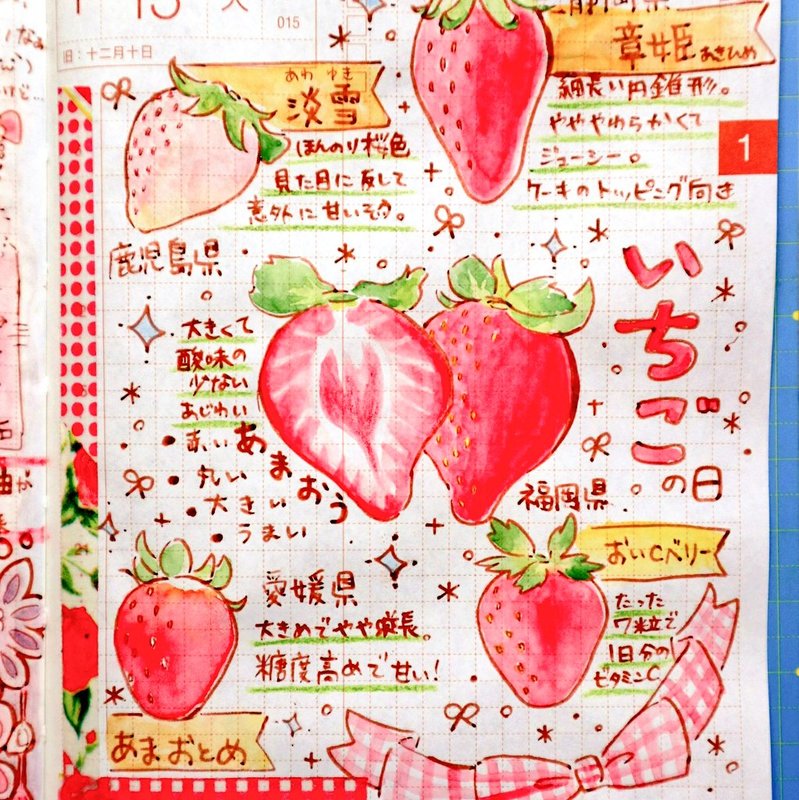 015
旧：十二月十日
静岡県
章姫 あきひめ
細長い円錐形。
やややわらかくて
ジューシー。
ケーキのトッピング向き
1
あわ ゆき
淡雪
ほんのり桜色
見た目に反して
意外に甘いそう。
鹿児島県
いちご
の日
大きくて
酸味の
少ない
あじわい
あまおう
赤い
丸い
大きい
うまい
福岡県
おいCベリー
たった
7粒で
1日分の
ビタミンC
愛媛県
大きめでやや縦長。
糖度高めで甘い!
あまおとめ